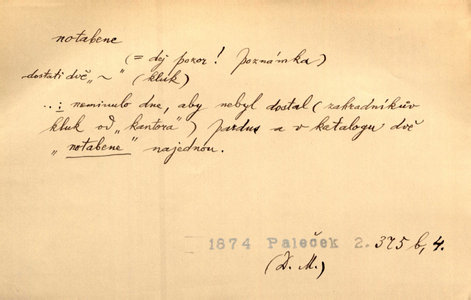 notabene
(= dej pozor! poznámka)
dostati dvě „~“ (kluk)
..: neminulo dne, aby nebyl dostal (zahradníkův
kluk od „kantora“) pardus a v katalogu dvě
„notabene“ najednou.
1874 Paleček 2. 375 b, 4.
(D. M.)